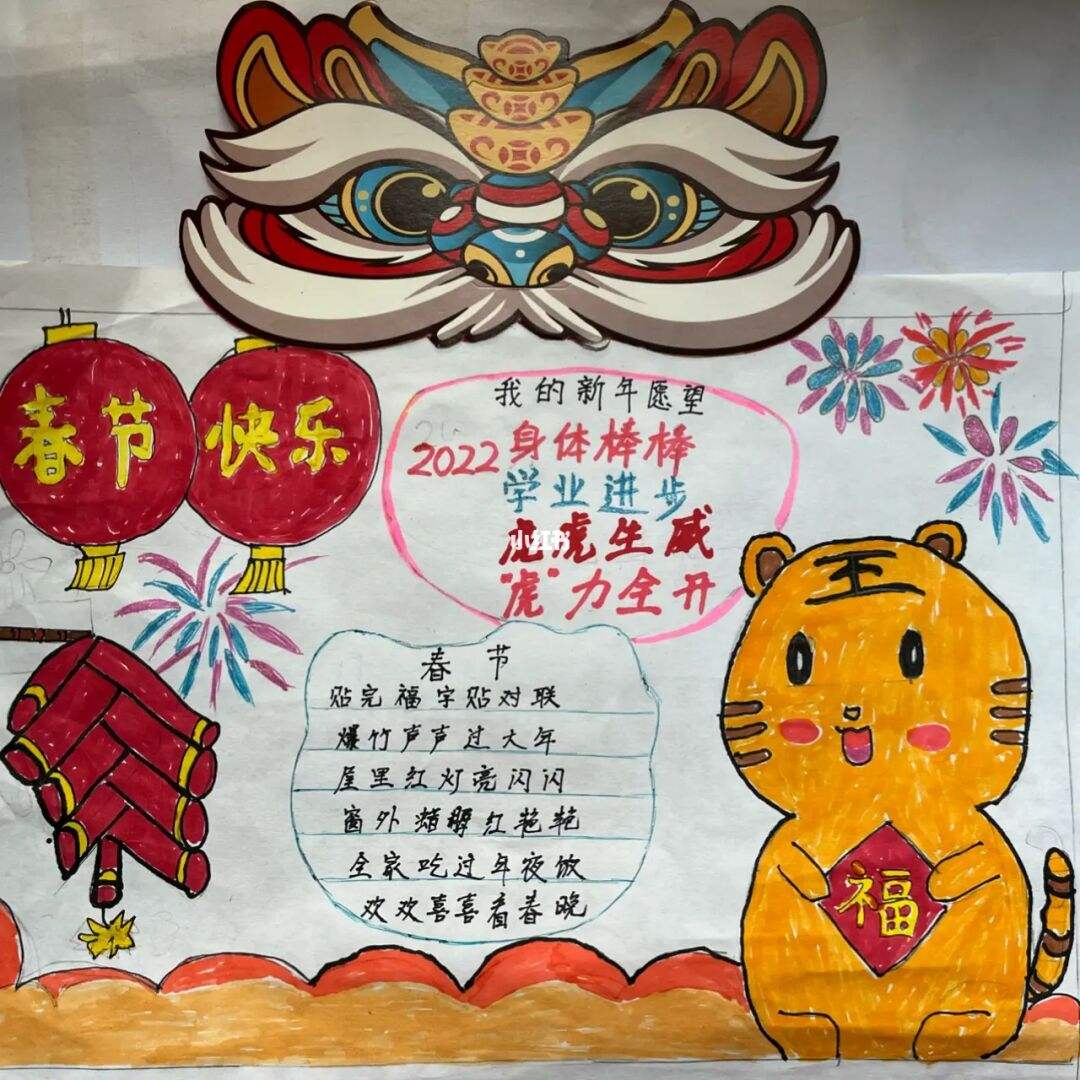 春节
快乐
我的新年愿望
2022身体棒棒
学业进步
虎虎生威
"虎"力全开
小红书
王
春节
贴完福字贴对联
爆竹声声过大年
屋里红灯亮闪闪
窗外红艳艳
全家吃过年夜饭
欢欢喜喜看春晚
福